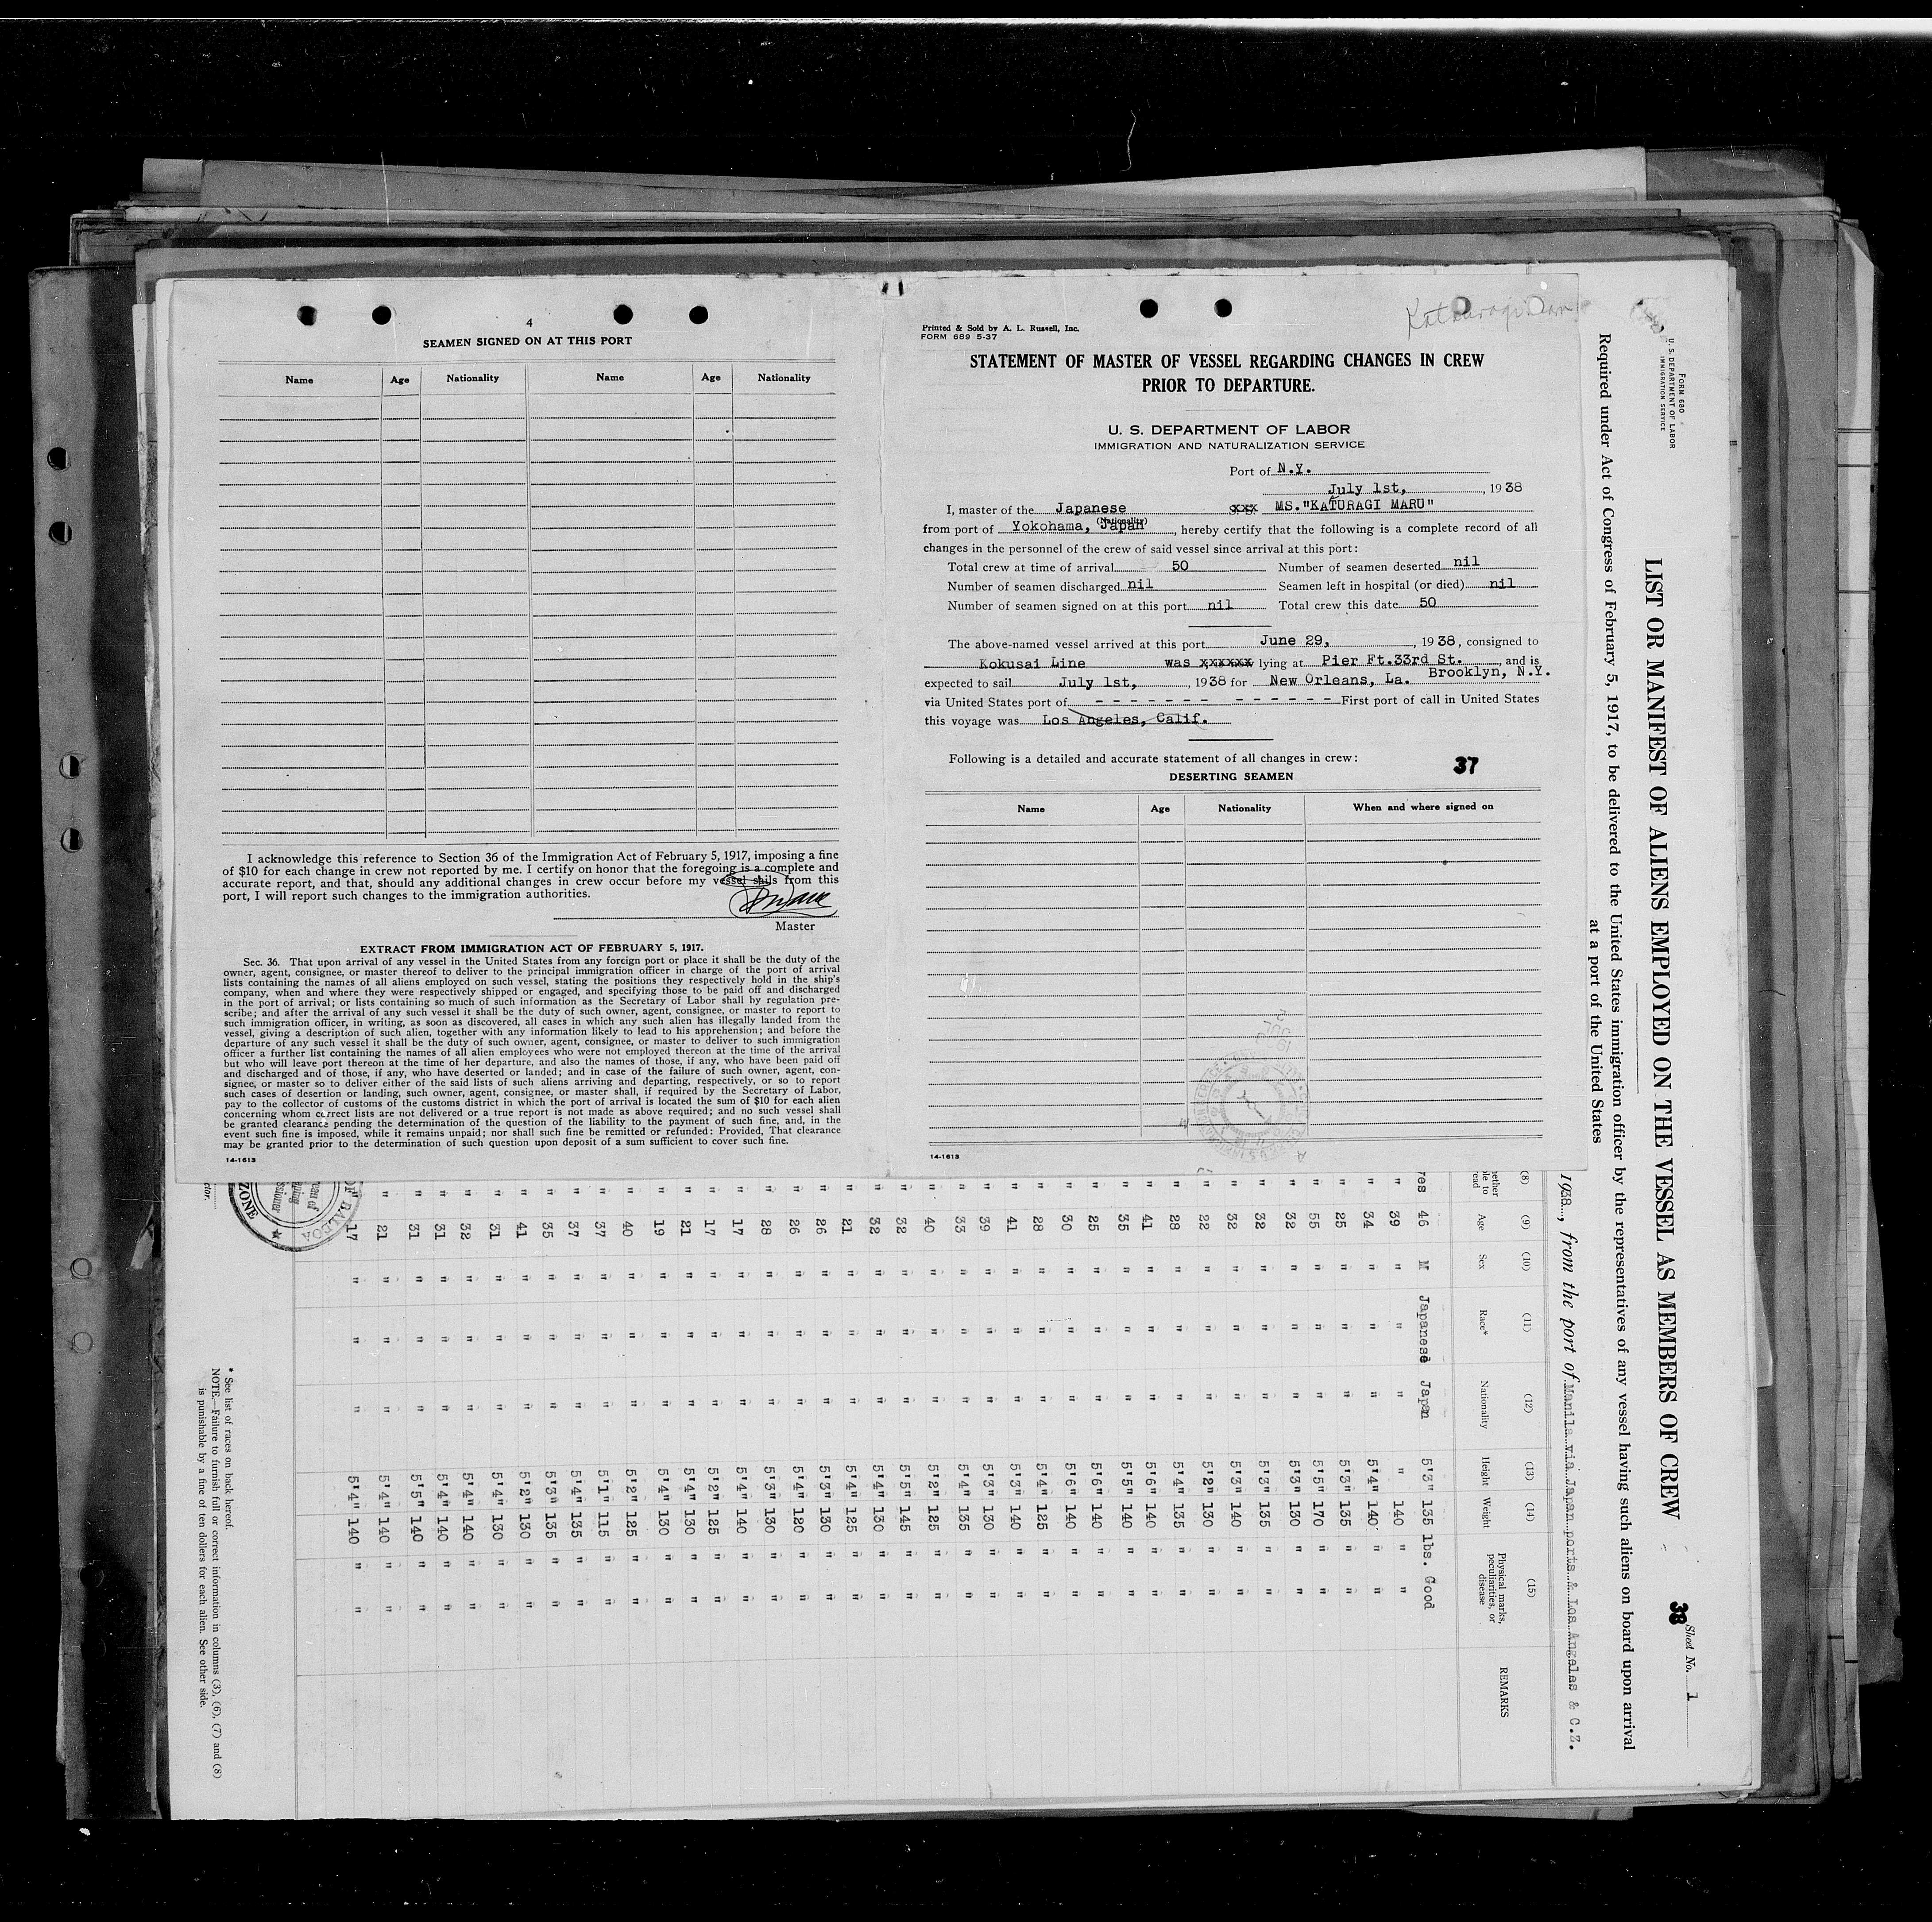 4
SEAMEN SIGNED ON AT THIS PORT
Name Age Nationality Name Age Nationality
I acknowledge this reference to Section 36 of the Immigration Act of February 5, 1917, imposing a fine
of $10 for each change in crew not reported by me. I certify on honor that the foregoing is a complete and
accurate report, and that, should any additional changes in crew occur before my vessel sails from this
port, I will report such changes to the immigration authorities.
Master
EXTRACT FROM IMMIGRATION ACT OF FEBRUARY 5, 1917.
Sec. 36. That upon arrival of any vessel in the United States from any foreign port or place it shall be the duty of the
owner, agent, consignee, or master thereof to deliver to the principal immigration officer in charge of the port of arrival
lists containing the names of all aliens employed on such vessel, stating the positions they respectively hold in the ship's
company, when and where they were respectively shipped or engaged, and specifying those to be paid off and discharged
in the port of arrival; or lists containing so much of such information as the Secretary of Labor shall by regulation pre-
scribe; and after the arrival of any such vessel it shall be the duty of such owner, agent, consignee, or master to report to
such immigration officer, in writing, as soon as discovered, all cases in which any such alien has illegally landed from the
vessel, giving a description of such alien, together with any information likely to lead to his apprehension; and before the
departure of any such vessel it shall be the duty of such owner, agent, consignee, or master to deliver to such immigration
officer a further list containing the names of all alien employees who were not employed thereon at the time of the arrival
but who will leave port thereon at the time of her departure, and also the names of those, if any, who have been paid off
and discharged and of those, if any, who have deserted or landed; and in case of the failure of such owner, agent, con-
signee, or master so to deliver either of the said lists of such aliens arriving and departing, respectively, or so to report
such cases of desertion or landing, such owner, agent, consignee, or master shall, if required by the Secretary of Labor,
pay to the collector of customs of the customs district in which the port of arrival is located the sum of $10 for each alien
concerning whom correct lists are not delivered or a true report is not made as above required; and no such vessel shall
be granted clearance pending the determination of the question of the liability to the payment of such fine, and, in the
event such fine is imposed, while it remains unpaid; nor shall such fine be remitted or refunded: Provided, That clearance
may be granted prior to the determination of such question upon deposit of a sum sufficient to cover such fine.
14-1613
Katuragi Maru
Printed & Sold by A. L. Russell, Inc.
FORM 689 5-37
STATEMENT OF MASTER OF VESSEL REGARDING CHANGES IN CREW
PRIOR TO DEPARTURE.
U. S. DEPARTMENT OF LABOR
IMMIGRATION AND NATURALIZATION SERVICE
Port of N.Y.
July 1st, , 1938
I, master of the Japanese xxx MS."KATURAGI MARU"
(Nationality)
from port of Yokohama, Japan , hereby certify that the following is a complete record of all
changes in the personnel of the crew of said vessel since arrival at this port:
Total crew at time of arrival 50 Number of seamen deserted nil
Number of seamen discharged nil Seamen left in hospital (or died) nil
Number of seamen signed on at this port nil Total crew this date 50
The above-named vessel arrived at this port June 29, , 1938, consigned to
Kokusai Line was xxxxxx lying at Pier Ft.33rd St. , and is
Brooklyn, N.Y.
expected to sail July 1st, , 1938 for New Orleans, La.
via United States port of - - - - - - - - - - - - - First port of call in United States
this voyage was Los Angeles, Calif.
Following is a detailed and accurate statement of all changes in crew:
37
DESERTING SEAMEN
Name Age Nationality When and where signed on
14-1613
FORM 680
U. S. DEPARTMENT OF LABOR
IMMIGRATION SERVICE
Sheet No. 1
38
LIST OR MANIFEST OF ALIENS EMPLOYED ON THE VESSEL AS MEMBERS OF CREW
Required under Act of Congress of February 5, 1917, to be delivered to the United States immigration officer by the representatives of any vessel having such aliens on board upon arrival
at a port of the United States
1938, from the port of Manila via Japan ports & Los Angeles & C.Z.
(8) (9) (10) (11) (12) (13) (14) (15)
Age Sex Race* Nationality Height Weight Physical marks, peculiarities, or disease REMARKS
yes 46 M Japanese Japan 5'3" 135 lbs. Good
" 39 " " " " 140 " "
" 34 " " " 5'4" 140 " "
" 25 " " " 5'3" 135 " "
" 55 " " " 5'5" 170 " "
" 32 " " " 5'3" 130 " "
" 32 " " " 5'3" 135 " "
" 32 " " " 5'3" 140 " "
" 22 " " " 5'2" 130 " "
" 28 " " " 5'4" 135 " "
" 41 " " " 5'6" 140 " "
" 35 " " " 5'5" 140 " "
" 25 " " " 5'6" 140 " "
" 30 " " " 5'6" 140 " "
" 28 " " " 5'4" 125 " "
" 41 " " " 5'3" 140 " "
" 39 " " " 5'3" 130 " "
" 33 " " " 5'4" 135 " "
" 40 " " " 5'2" 125 " "
" 32 " " " 5'5" 145 " "
" 32 " " " 5'4" 130 " "
" 21 " " " 5'4" 125 " "
" 26 " " " 5'3" 130 " "
" 26 " " " 5'4" 120 " "
" 28 " " " 5'3" 130 " "
" 17 " " " 5'4" 140 " "
" 17 " " " 5'2" 125 " "
" 21 " " " 5'4" 130 " "
" 19 " " " 5'4" 130 " "
" 40 " " " 5'2" 125 " "
" 37 " " " 5'1" 115 " "
" 37 " " " 5'4" 135 " "
" 35 " " " 5'3" 135 " "
" 41 " " " 5'2" 130 " "
" 31 " " " 5'4" 130 " "
" 32 " " " 5'4" 140 " "
" 31 " " " 5'4" 140 " "
" 31 " " " 5'5" 140 " "
" 21 " " " 5'4" 140 " "
17 " " " 5'4" 140 " "
OF BALBOA
ZONE
* See list of races on back hereof.
NOTE.—Failure to furnish full or correct information in columns (3), (6), (7) and (8)
is punishable by a fine of ten dollars for each alien. See other side.